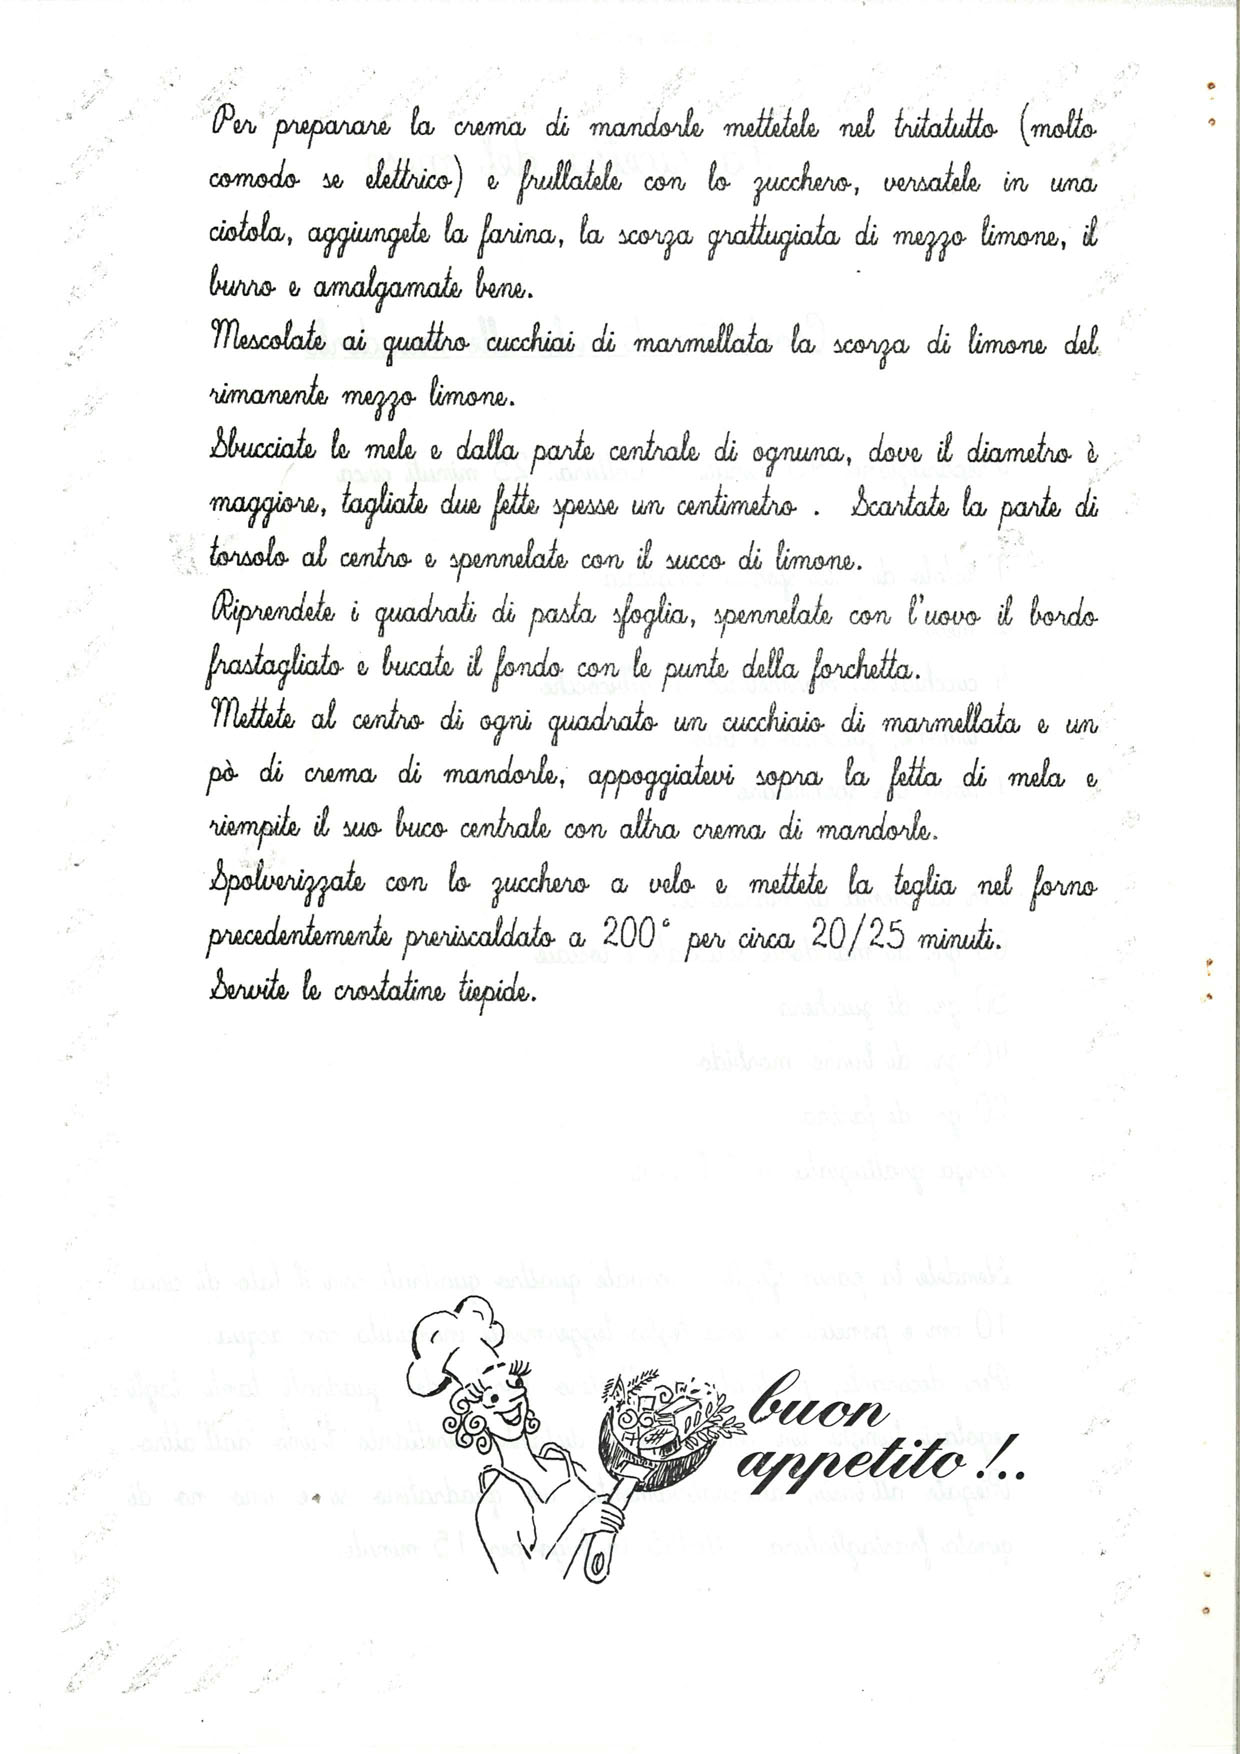 Per preparare la crema di mandorle mettetele nel tritatutto (molto
comodo se elettrico) e frullatele con lo zucchero, versatele in una
ciotola, aggiungete la farina, la scorza grattugiata di mezzo limone, il
burro e amalgamate bene.
Mescolate ai quattro cucchiai di marmellata la scorza di limone del
rimanente mezzo limone.
Sbucciate le mele e dalla parte centrale di ognuna, dove il diametro è
maggiore, tagliate due fette spesse un centimetro . Scartate la parte di
torsolo al centro e spennelate con il succo di limone.
Riprendete i quadrati di pasta sfoglia, spennelate con l'uovo il bordo
frastagliato e bucate il fondo con le punte della forchetta.
Mettete al centro di ogni quadrato un cucchiaio di marmellata e un
pò di crema di mandorle, appoggiatevi sopra la fetta di mela e
riempite il suo buco centrale con altra crema di mandorle.
Spolverizzate con lo zucchero a velo e mettete la teglia nel forno
precedentemente preriscaldato a 200° per circa 20/25 minuti.
Servite le crostatine tiepide.
buon
appetito!..